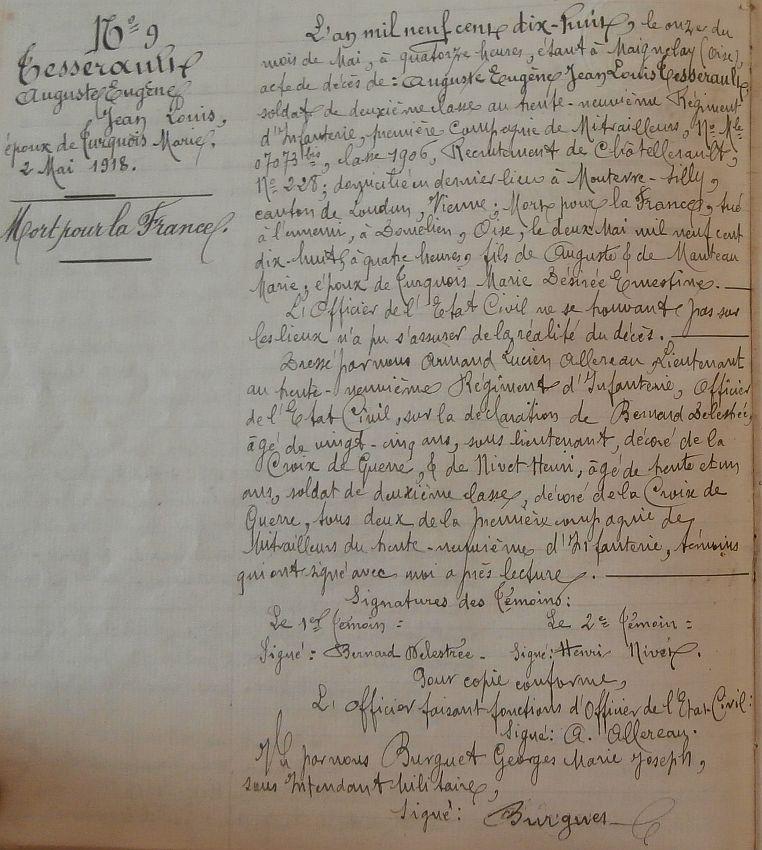 No 9
Tesserault
Auguste Eugène
Jean Louis,
époux de Turquois Marie.
2 Mai 1918.
Mort pour la France.
L'an mil neuf cent dix-huit, le onze du
mois de Mai, à quatorze heures, étant à Maignelay (Oise),
acte de décès de : Auguste Eugène Jean Louis Tesserault,
soldat de deuxième classe au trente-neuvième Régiment
d'Infanterie, première Compagnie de Mitrailleurs, No Mle
07073 bis, classe 1906, Recrutement de Châtellerault,
No 228 ; domicilié en dernier lieu à Mouterre-Silly,
canton de Loudun, Vienne ; Mort pour la France, tué
à l'ennemi, à Domelien, Oise, le deux Mai mil neuf cent
dix-huit, à quatre heures, fils de Auguste & de Manteau
Marie ; époux de Turquois Marie Désirée Ernestine.
L'Officier de l'Etat Civil ne se trouvant pas sur
les lieux n'a pu s'assurer de la réalité du décès.
Dressé par nous Armand Lucien Allereau Lieutenant
au trente-neuvième Régiment d'Infanterie, Officier
de l'Etat Civil, sur la déclaration de Bernard Delestrée,
âgé de vingt-cinq ans, sous lieutenant, décoré de la
Croix de Guerre, & de Nivet Henri, âgé de trente et un
ans, soldat de deuxième classe, décoré de la Croix de
Guerre, tous deux de la première compagnie de
Mitrailleurs du trente-neuvième d'Infanterie, témoins
qui ont signé avec moi après lecture.
Signatures des Témoins :
Le 1er Témoin : Le 2e Témoin :
Signé : Bernard Delestrée - Signé : Henri Nivet.
Pour copie conforme,
L'Officier faisant fonctions d'Officier de l'Etat-Civil :
Signé : A. Allereau.
Vu par nous Burguet Georges Marie Joseph,
sous Intendant Militaire,
Signé : Burguet